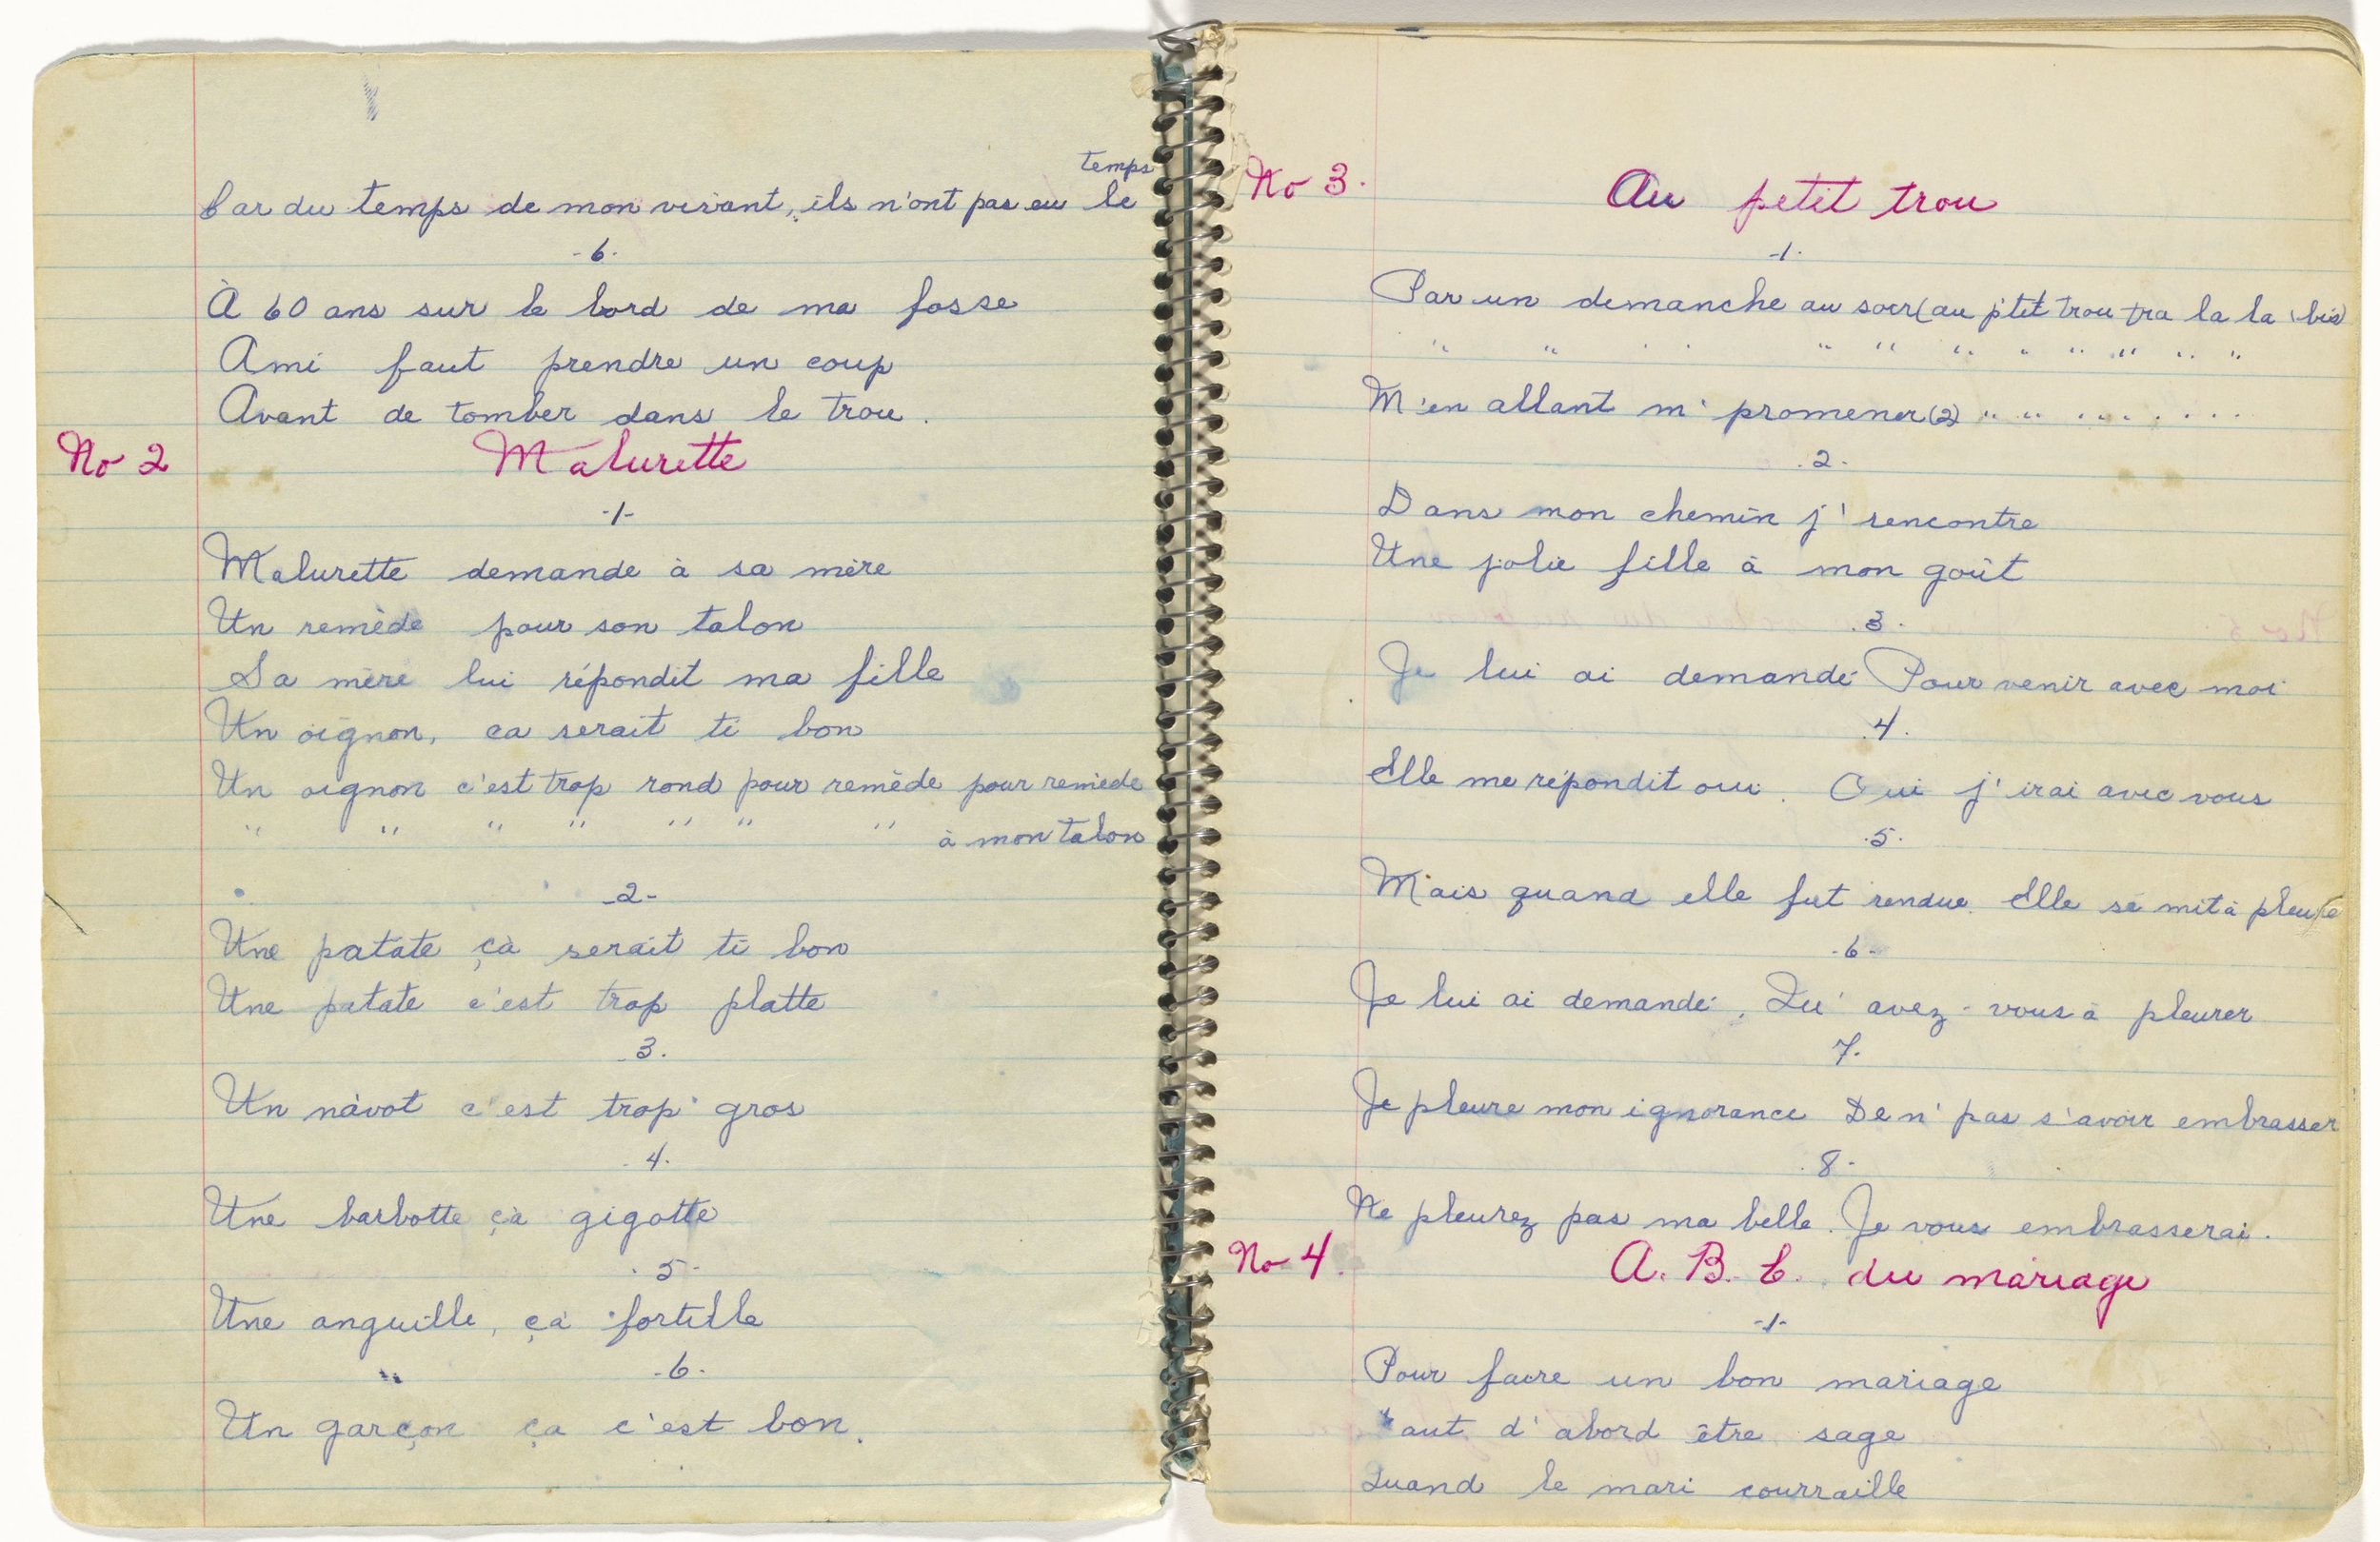 temps
Car du temps de mon vivant, ils n'ont pas eu le
-6-
À 60 ans sur le bord de ma fosse
Ami faut prendre un coup
Avant de tomber dans le trou.
No 2 Malurette
-1-
Malurette demande à sa mère
Un remède pour son talon
Sa mère lui répondit ma fille
Un oignon, ca serait ti bon
Un oignon c'est trop rond pour remède pour remède
" " " " " " " à mon talon
-2-
Une patate çà serait ti bon
Une patate c'est trop platte
-3.
Un nàvot c'est trop gros
-4.
Une barbotte çà gigotte
-5-
Une anguille, çà fortille
-6-
Un garçon ça c'est bon.
No 3. Au petit trou
-1-
Par un demanche au soir (au p'tit trou tra la la (bis)
" " " " " " " " " " " "
M'en allant m'promener (2) " " " " " " " "
.2.
Dans mon chemin j'rencontre
Une jolie fille à mon goût
.3.
Je lui ai demandé Pour venir avec moi
.4.
Elle me répondit oui. Oui j'irai avec vous
.5.
Mais quand elle fut rendue. Elle se mit à pleure
-6-
Je lui ai demandé, Qu'avez-vous à pleurer
7.
Je pleure mon ignorance De n'pas s'avoir embrasser
.8-
Ne pleurez pas ma belle. Je vous embrasserai.
No 4. A. B. C. du mariage
-1-
Pour faire un bon mariage
Faut d'abord être sage
Quand le mari courraille